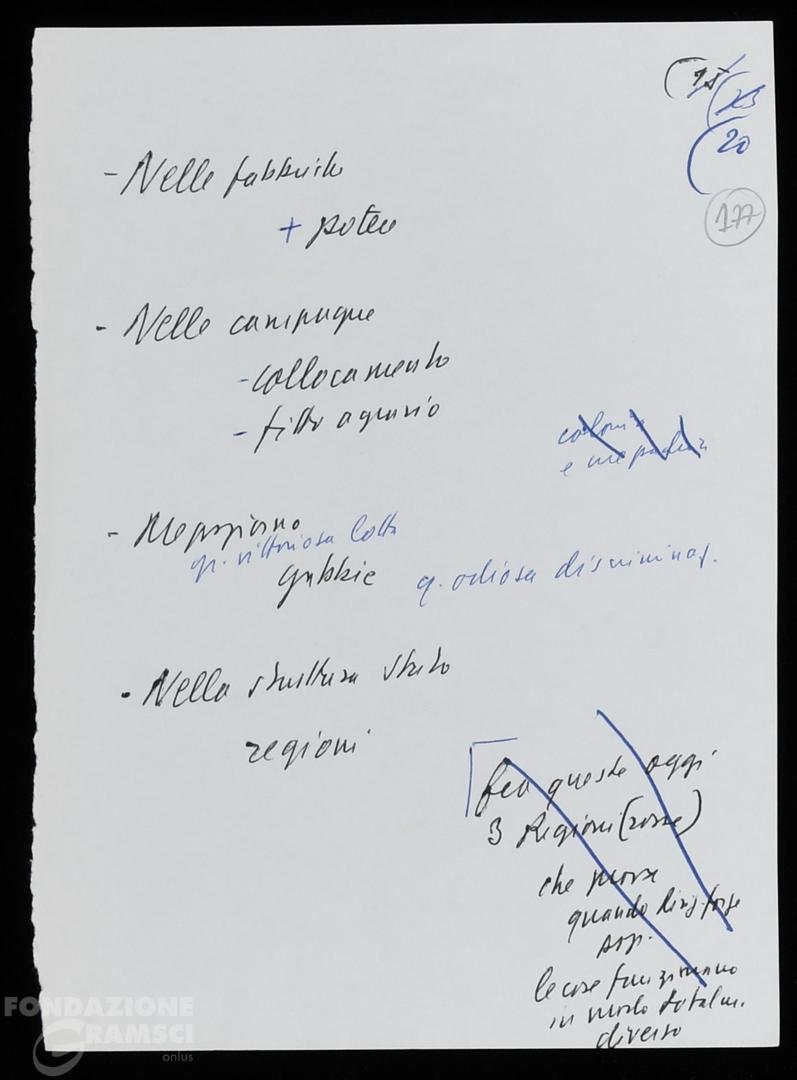 (15
(23
(20
177
- Nelle fabbriche
+ potere
- Nelle campagne
- collocamento
- fitto agrario
colonia
e mezzadria
- Mezzogiorno
q. vittoriosa lotta
gabbie q. odiosa discriminaz.
- Nella struttura Stato
regioni
fra queste oggi
3 Regioni (rosse)
che prova
quando dirig. forze
pop.
le cose funzionano
in modo totalm.
diverso
FONDAZIONE
GRAMSCI
onlus